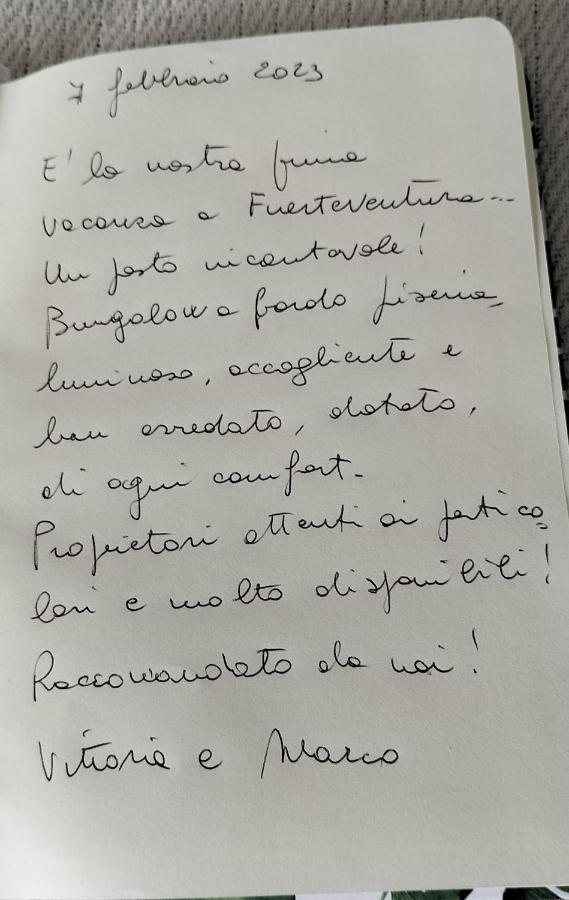 7 febbraio 2023
E' la nostra prima
vacanza a Fuerteventura...
Un posto incantevole!
Bungalow a bordo piscina,
luminoso, accogliente e
ben arredato, dotato,
di ogni comfort.
Proprietari attenti ai partico
lari e molto disponibili!
Raccomandato da noi!
Vittoria e Marco